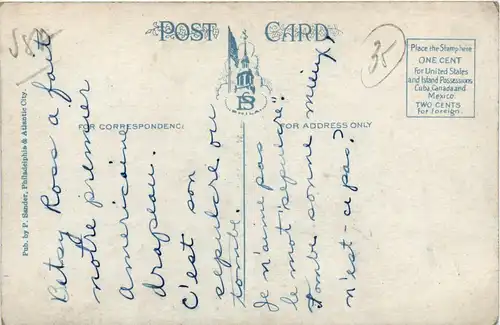 POST CARD
Place the Stamp here
ONE CENT
For United States
and Island Possessions
Cuba, Canada and
Mexico.
TWO CENTS
for Foreign.
35
PHILA
FOR CORRESPONDENCE
FOR ADDRESS ONLY
Pub. by P. Sander, Philadelphia & Atlantic City.
Betsy Ross a fait
notre premier
americaine
drapeau.
C'est son
sepulcre ou
tombe.
Je n'aime pas
le mot "sepulcre".
Tombe sonne mieux,
n'est-ce pas?